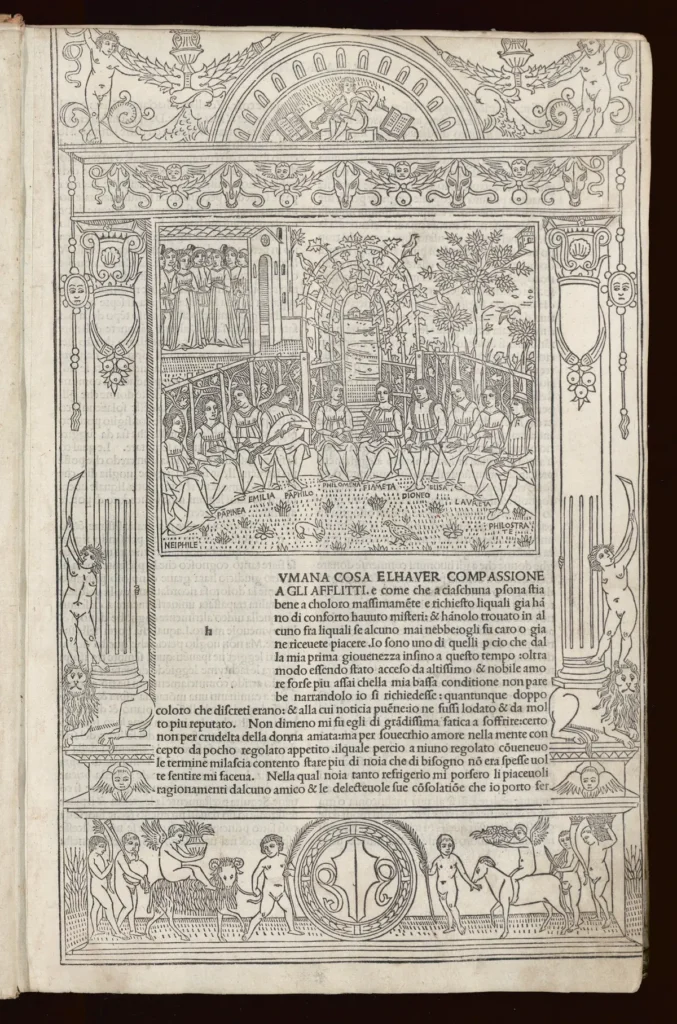 NEIPHILE
PAPINEA
EMILIA
PAPHILO
PHILOMENA
FIAMETA
DIONEO
ELISA
LAVRETA
PHILOSTRA
TE
VMANA COSA ELHAVER COMPASSIONE
A GLI AFFLITTI. e come che a ciaſchuna pſona ſtia
bene a choloro maſſimamẽte e richieſto liquali gia hã
no di conforto hauuto miſteri: & hãnolo trouato in al
h
cuno fra liquali ſe alcuno mai nebbe: ogli fu caro o gia
ne riceuete piacere. Io ſono uno di quelli p cio che dal
la mia prima giouenezza inſino a queſto tempo oltra
modo eſſendo ſtato acceſo da altiſſimo & nobile amo
re forſe piu aſſai chella mia baſſa conditione non pare
be narrandolo io ſi richiedeſſe: quantunque doppo
coloro che diſcreti erano: & alla cui noticia puẽne: io ne fuſſi lodato & da mol
to piu reputato. Non dimeno mi fu egli di grãdiſſima fatica a ſoffrire: certo
non per crudelta della donna amata: ma per ſouerchio amore nella mente con
cepto da pocho regolato appetito. ilquale percio a niuno regolato cõueneuo
le termine milaſcia contento ſtare piu di noia che di biſogno nõ era ſpeſſe uol
te ſentire mi faceua. Nella qual noia tanto refrigerio mi porſero li piaceuoli
ragionamenti dalcuno amico & le delecteuole ſue cõſolatiõe che io porto fer